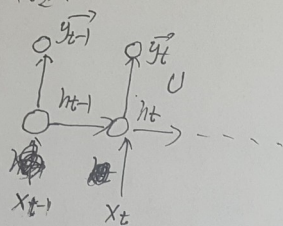 y⃗t-1
y⃗t
U
ht-1
ht
xt-1
xt